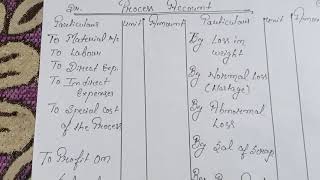 Dr. Process Account
Particulars Unit Amount Particulars Unit
To Material A/c
To Labour
To Direct Exp.
To Indirect
Expenses
To Special Cost
of the Process
To Profit On
By Loss in
weight
By Normal Loss
(Wastage)
By Abnormal
Loss
By Sal of Scrap